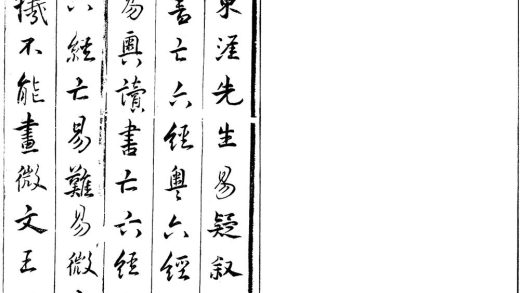 東涯先生易疑叙
書亡六經奧六經
易奧讀書亡六經
六經亡易難易微
犧不能畫微文王